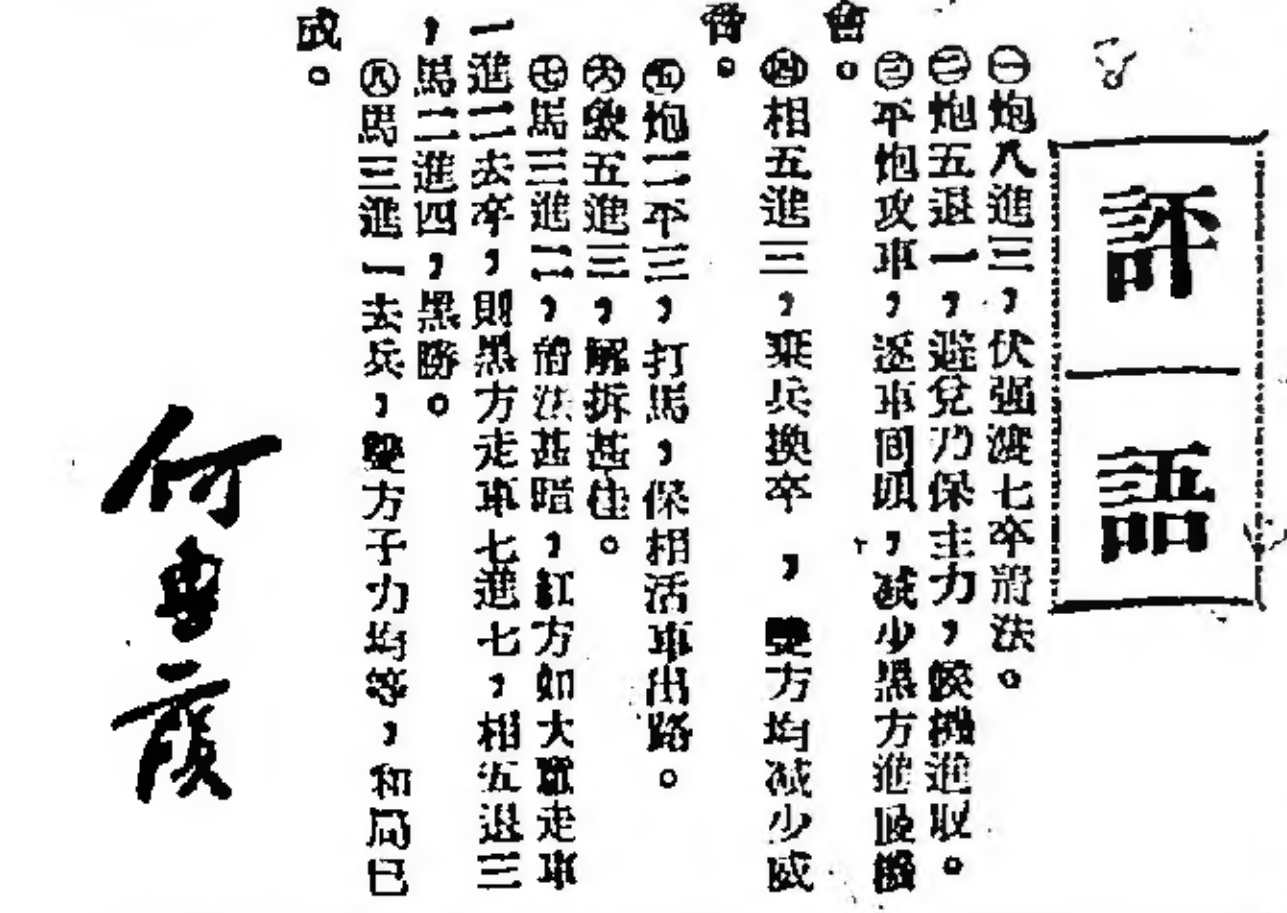 評語
㊀炮八進三，伏强渡七卒着法。
㊁炮五退一，避兌乃保主力，候機進取。
㊂平炮攻車，逐車回頭，减少黑方進展機
會。
㊃相五進三，棄兵換卒，雙方均减少威
脅。
㊄炮二平三，打馬，保相活車出路。
㊅象五進三，解拆甚佳。
㊆馬三進二，着法甚暗，紅方如大意走車
一進二去卒，則黑方走車七進七，相五退三
，馬二進四，黑勝。
㊇馬三進一去兵，雙方子力均等，和局已
成。
何